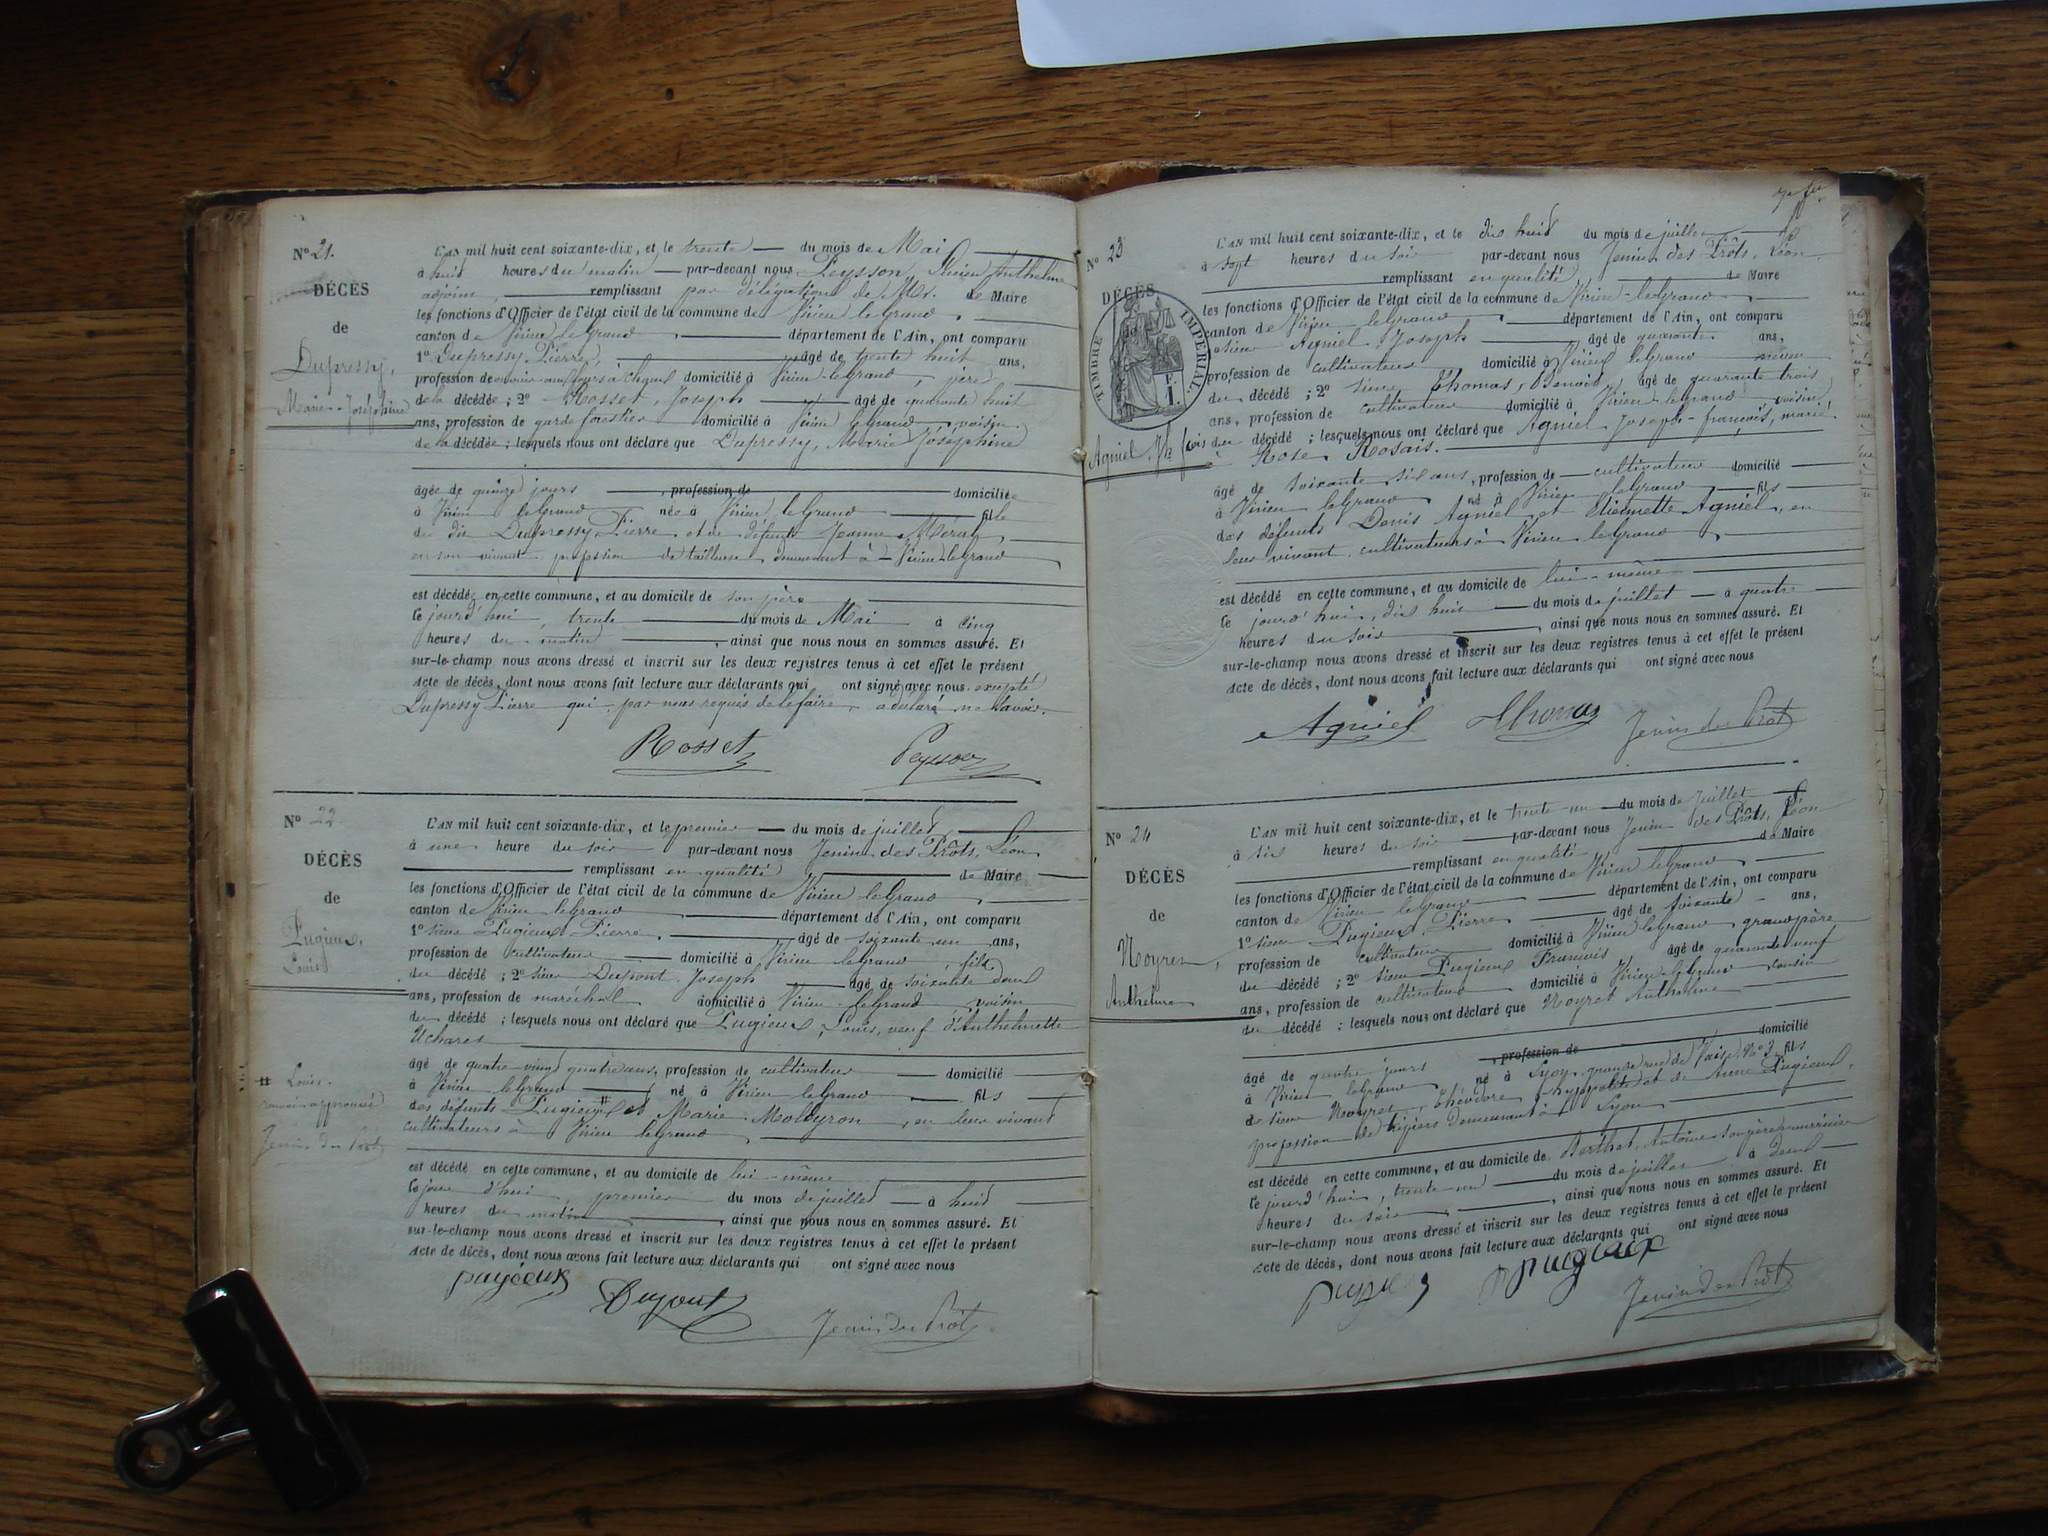 N° 21.
DÉCÈS
de
Dupressy,
Marie-Joséphine
L'AN mil huit cent soixante-dix, et le trente du mois de Mai
à huit heures du matin par-devant nous Peysson, Anthelme
adjoint, remplissant par délégation de Mr. le Maire
les fonctions d'Officier de l'état civil de la commune de Virieu le Grand
canton de Virieu le Grand département de l'Ain, ont comparu
1° Dupressy Pierre, âgé de trente huit ans,
profession de domicilié à Virieu-le-Grand, père
de la décédée; 2° Rosset, Joseph âgé de quarante huit
ans, profession de garde forestier domicilié à Virieu le Grand voisin
de la décédée; lesquels nous ont déclaré que Dupressy, Marie Joséphine
âgée de quinze jours profession de domiciliée
à Virieu le Grand née à Virieu le Grand fille
du dit Dupressy Pierre et de défunte Jeanne
en son vivant profession de tailleuse demeurant à Virieu-le-Grand
est décédée en cette commune, et au domicile de son père
le jourd'hui, trente du mois de Mai à cinq
heures du matin, ainsi que nous nous en sommes assuré. Et
sur-le-champ nous avons dressé et inscrit sur les deux registres tenus à cet effet le présent
Acte de décès, dont nous avons fait lecture aux déclarants qui ont signé avec nous excepté
Dupressy Pierre qui, par nous requis de le faire, a déclaré ne savoir.
Rosset Peysson
N° 22
DÉCÈS
de
Pugieux,
Louis
L'AN mil huit cent soixante-dix, et le premier du mois de juillet
à une heure du soir par-devant nous Jenin des Prôts, Léon
remplissant en qualité de Maire
les fonctions d'Officier de l'état civil de la commune de Virieu le Grand
canton de Virieu le Grand département de l'Ain, ont comparu
1° sieur Pugieux Pierre, âgé de soixante un ans,
profession de cultivateur domicilié à Virieu le Grand fils
du décédé; 2° sieur Dupont Joseph âgé de soixante deux
ans, profession de maréchal domicilié à Virieu-le-Grand voisin
du décédé; lesquels nous ont déclaré que Pugieux, Louis, veuf d'Anthelmette
Uchares
âgé de quatre-vingt quatre ans, profession de cultivateur domicilié
à Virieu le Grand né à Virieu le Grand fils
des défunts Pugieux # et Marie Moldyron, en leur vivant
cultivateurs à Virieu le Grand
# Louis.
renvoi approuvé
Jenin des Prôts
est décédé en cette commune, et au domicile de lui-même
le jour d'hui, premier du mois de juillet à huit
heures du matin, ainsi que nous nous en sommes assuré. Et
sur-le-champ nous avons dressé et inscrit sur les deux registres tenus à cet effet le présent
Acte de décès, dont nous avons fait lecture aux déclarants qui ont signé avec nous
pugieux Dupont Jenin des Prôts
N° 23
DÉCÈS
TIMBRE IMPÉRIAL
F.
1.
Agniel, Jh fçois
L'AN mil huit cent soixante-dix, et le dix huit du mois de juillet
à sept heures du soir par-devant nous Jenin des Prôts, Léon
remplissant en qualité de Maire
les fonctions d'Officier de l'état civil de la commune de Virieu-le-Grand
canton de Virieu le Grand département de l'Ain, ont comparu
sieur Agniel Joseph âgé de quarante ans,
profession de cultivateur domicilié à Virieu le Grand
du décédé; 2° sieur Thomas, Benoit âgé de quarante trois
ans, profession de cultivateur domicilié à Virieu le Grand voisin
du décédé; lesquels nous ont déclaré que Agniel Joseph-françois, marié
à Rose Rosais.
âgé de soixante six ans, profession de cultivateur domicilié
à Virieu le Grand né à Virieu le Grand fils
des défunts Denis Agniel et Etiennette Agniel, en
leur vivant cultivateurs à Virieu le Grand
est décédé en cette commune, et au domicile de lui-même
le jourd'hui, dix huit du mois de juillet à quatre
heures du soir, ainsi que nous nous en sommes assuré. Et
sur-le-champ nous avons dressé et inscrit sur les deux registres tenus à cet effet le présent
Acte de décès, dont nous avons fait lecture aux déclarants qui ont signé avec nous
Agniel Thomas Jenin des Prôts
N° 24
DÉCÈS
de
Noyret,
Anthelme
L'AN mil huit cent soixante-dix, et le trente-un du mois de Juillet
à six heures du soir par-devant nous Jenin des Prôts, Léon
remplissant en qualité de Maire
les fonctions d'Officier de l'état civil de la commune de Virieu le Grand
canton de Virieu le Grand département de l'Ain, ont comparu
1° sieur Pugieux, Pierre âgé de soixante ans,
profession de cultivateur domicilié à Virieu le Grand grand père
du décédé; 2° sieur Pugieux Francois âgé de quarante neuf
ans, profession de cultivateur domicilié à Virieu-le-Grand cousin
du décédé; lesquels nous ont déclaré que Noyret Anthelme
âgé de quatre jours profession de domicilié
à Virieu le Grand né à Lyon, grande rue de Vaise, N° 3 fils
de sieur Noyret, Théodore hyppolite et de Anne Pugieux,
profession de demeurant à Lyon
est décédé en cette commune, et au domicile de Berthet, Antoine son père nourricier
le jourd'hui, trente un du mois de juillet à deux
heures du soir, ainsi que nous nous en sommes assuré. Et
sur-le-champ nous avons dressé et inscrit sur les deux registres tenus à cet effet le présent
Acte de décès, dont nous avons fait lecture aux déclarants qui ont signé avec nous
pugieux Jenin des Prôts